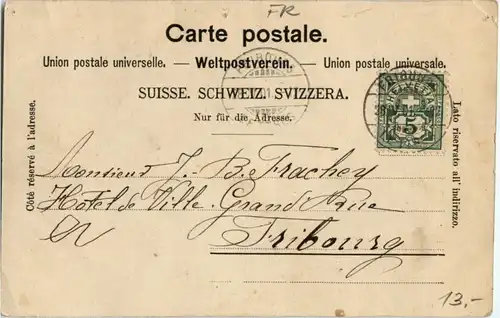 FR
Carte postale.
Union postale universelle. — Weltpostverein. — Union postale universale.
SUISSE. SCHWEIZ. SVIZZERA.
Nur für die Adresse.
Côté réservé à l'adresse.
Lato riservato all' indirizzo.
HELVETIA
5
Monsieur J. B. Frachey
Hôtel de Ville Grand'Rue
Fribourg
13,-